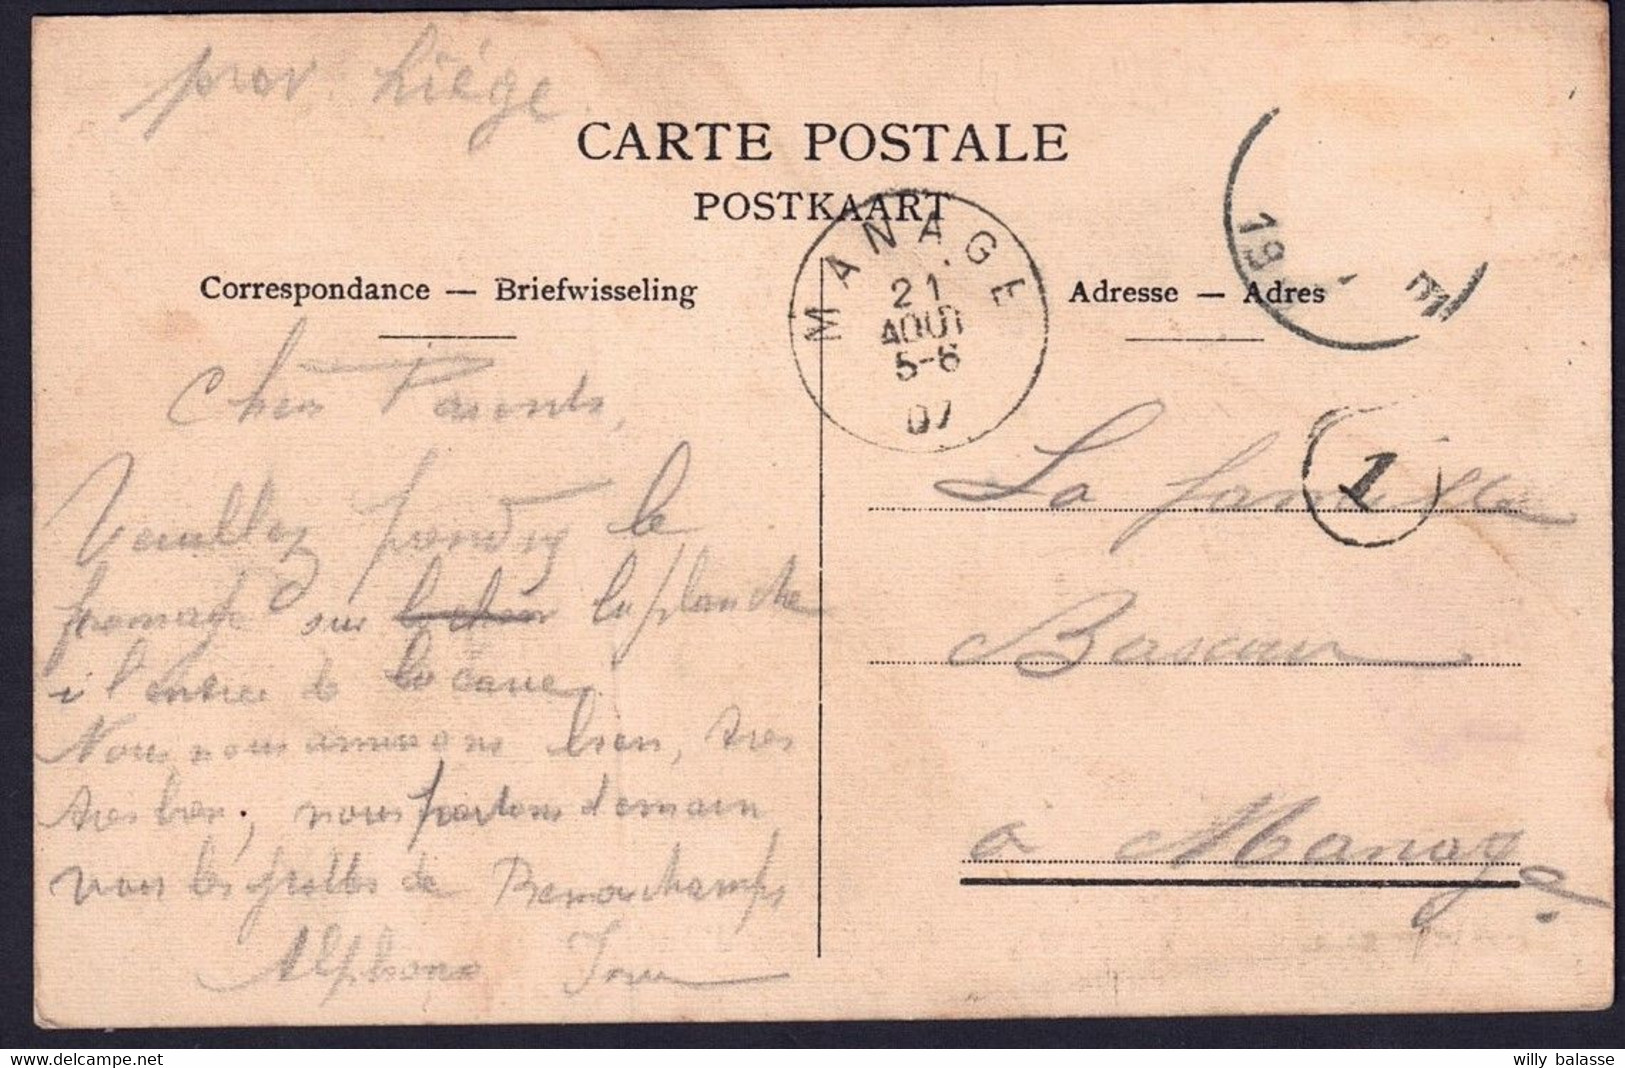 prov. Liége
CARTE POSTALE
POSTKAART
MANAGE
21
AOUT
5-6
07
19
E
Correspondance — Briefwisseling
Adresse — Adres
Chers Parents,
Veuillez prendre le
fromage sur la planche
à l'entrée de la cave
Nous nous amusons bien, tres
tres bien, nous partons demain
voir les grottes de Remouchamps
Alphonse
La famille
1
Bascour
a Manage
willy balasse